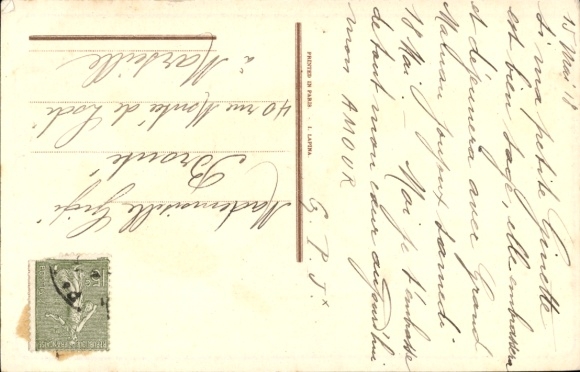 15 Mai 18
Si ma petite Ginette
est bien sage, elle embrassera
et déjeunera avec Grand
Maman Joujoux Samedi
18 Mai — Moi je t'embrasse
de tout mon cœur aujourd'hui
mon AMOUR
G. P. J.
PRINTED IN PARIS. - I. LAPINA.
Mademoiselle Gigi
40 rue Monté de Lodi
à Marseille
15c
RÉPUBLIQUE FRANÇAISE